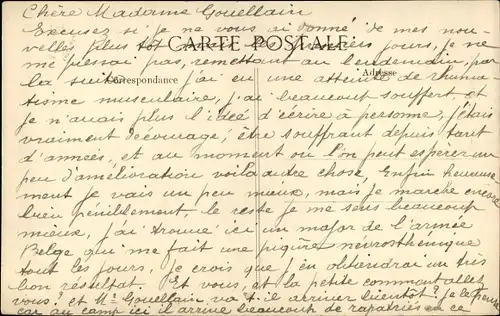 Chère Madame Gouellain
Excusez si je ne vous ai donné de mes nou-
velles plus tôt jours, je ne
CARTE POSTALE
me plaisai pas, remettant au lendemain, par
la suite j'ai eu une atteinte de rhuma
Correspondance
Adresse
tisme musculaire, j'ai beaucoup souffert, et
je n'avais plus l'idée d'écrire à personne, j'étais
vraiment découragé; être souffrant depuis tant
d'années, et au moment ou l'on peut espérer un
peu d'amélioration voila autre chose, Enfin heureuse
ment je vais un peu mieux, mais je marche encore
bien péniblement, le reste je me sens beaucoup
mieux, j'ai trouvé ici un major de l'armée
Belge qui me fait une piqûre neurosthénique
tout les jours, je crois que j'en obtiendrai un très
bon résultat. Et vous, et la petite comment allez
vous? et Mr Gouellain va t-il arriver bientôt? je le pense
car au camp ici il arrive beaucoup de rapatriés en ce